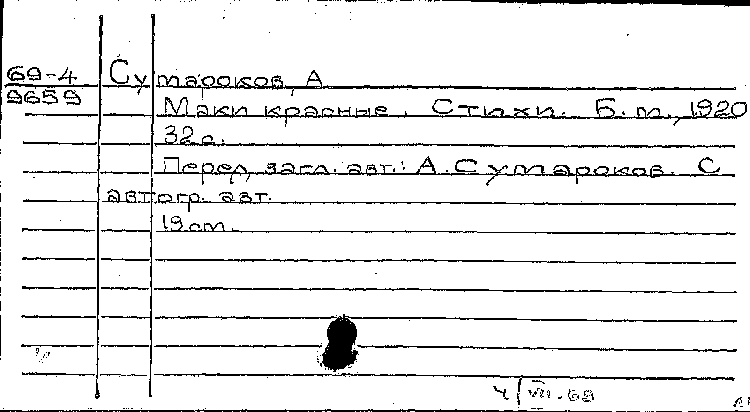 69-4 Сутароков, А
9659 Маки красные. Стихи. Б.м., 1920
32с.
Перед загл. авт.: А. Сутароков. С
автогр. авт.
19 cm.
VII-69